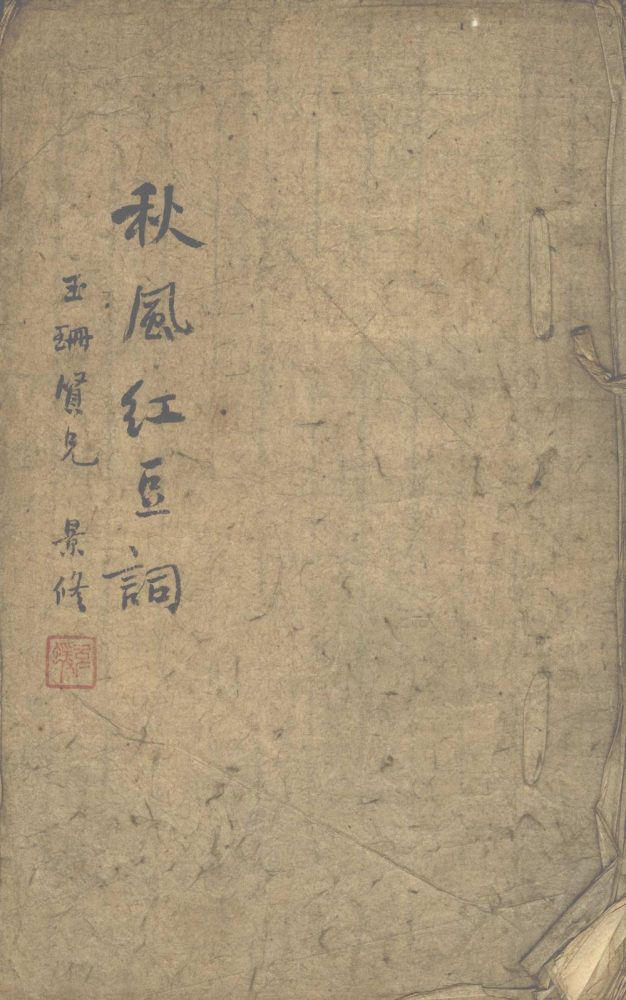 秋風红豆詞
玉珊賢兄 景修